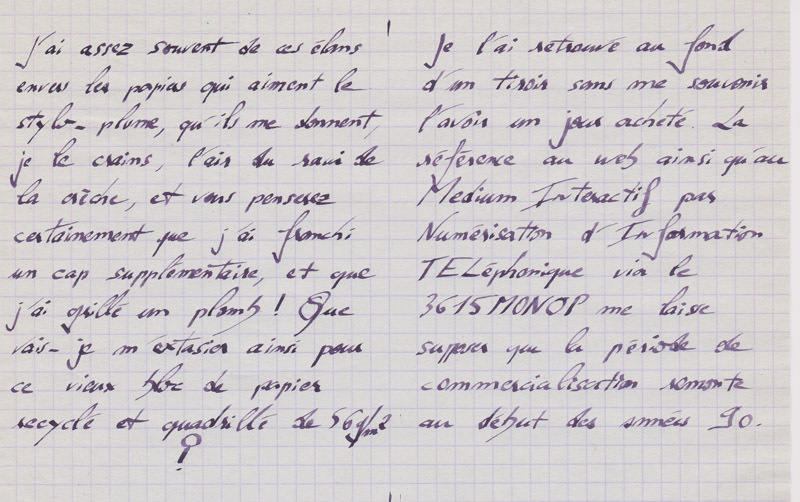 J'ai assez souvent de ces élans
envers les papiers qui aiment le
stylo-plume, qu'ils me donnent,
je le crains, l'air du ravi de
la crèche, et vous penserez
certainement que j'ai franchi
un cap supplémentaire, et que
j'ai grillé un plomb ! Que
vais-je m'extasier ainsi pour
ce vieux bloc de papier
recyclé et quadrillé de 56g/m2
?
Je l'ai retrouvé au fond
d'un tiroir sans me souvenir
l'avoir un jour acheté. La
référence au web ainsi qu'au
Médium Interactif par
Numérisation d'Information
TELéphonique via le
3615MONOP me laisse
supposer que la période de
commercialisation remonte
au début des années 90.